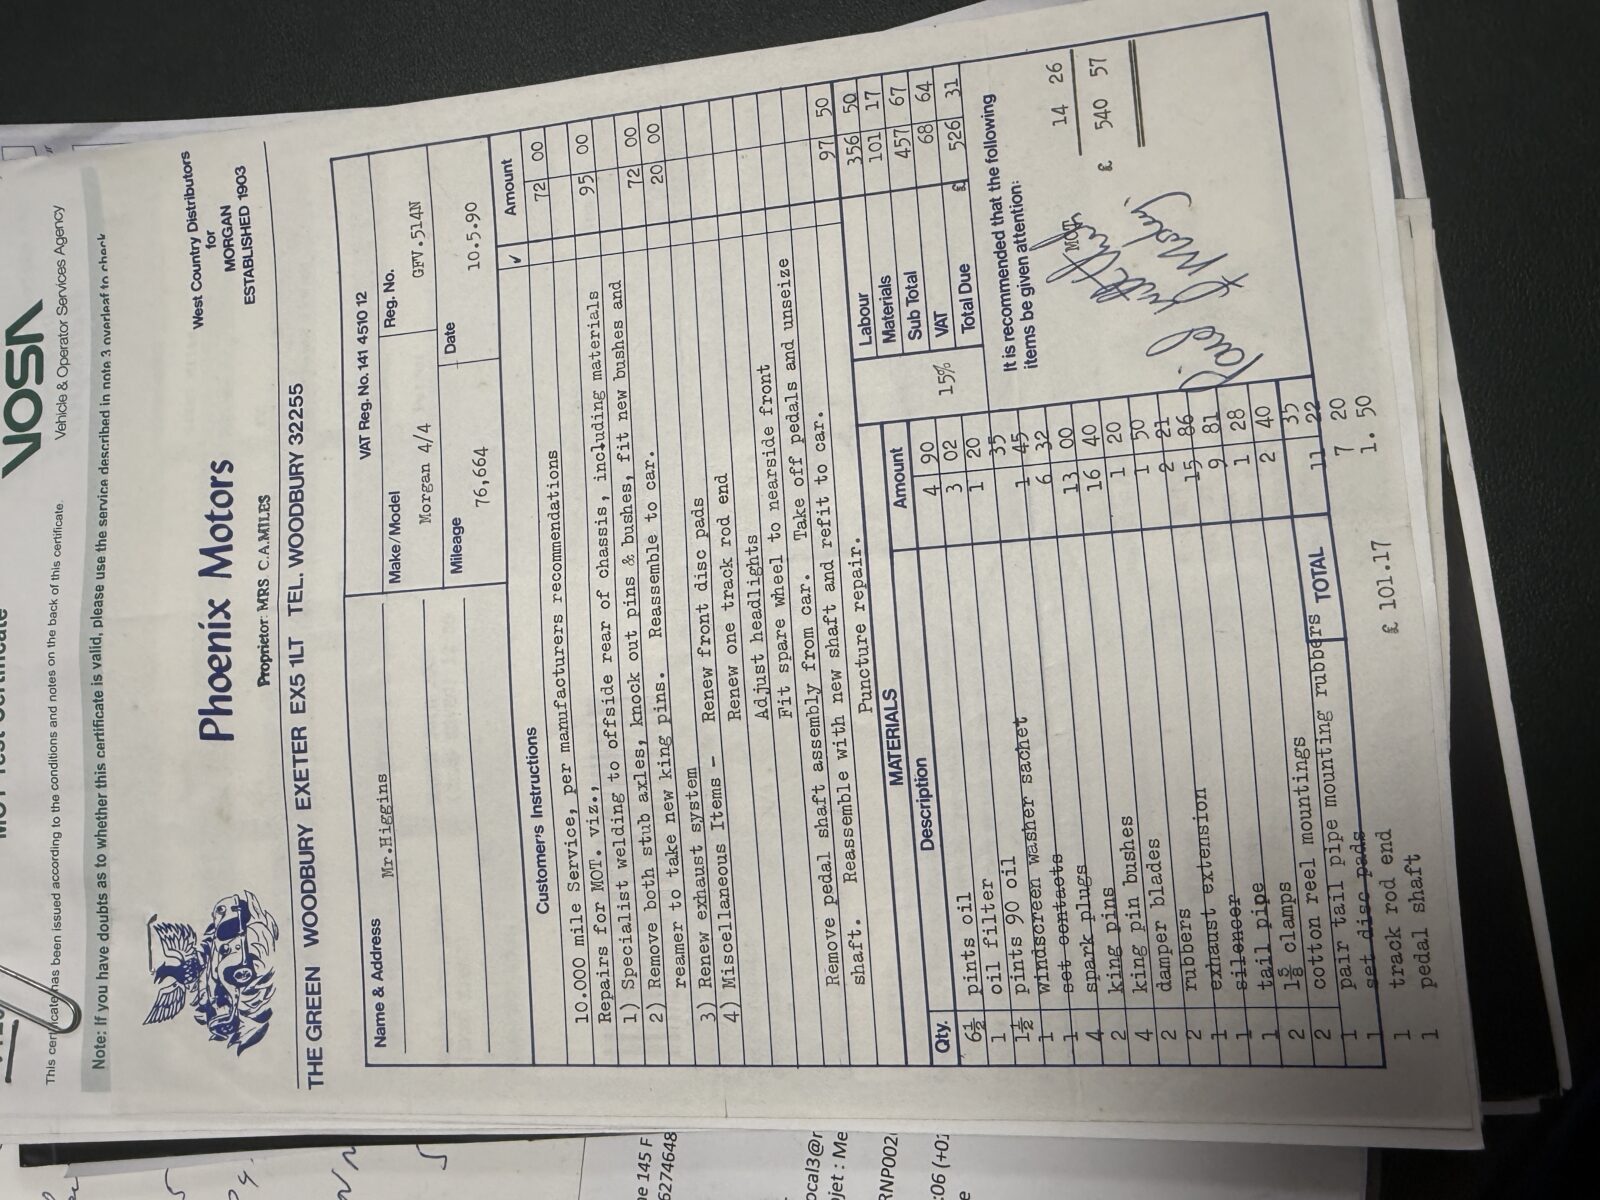 VOSA
Vehicle & Operator Services Agency
This certificate has been issued according to the conditions and notes on the back of this certificate.
Note: If you have doubts as to whether this certificate is valid, please use the service described in note 3 overleaf to check
Phoenix Motors
Proprietor: MRS C.A.MILES
West Country Distributors
for
MORGAN
ESTABLISHED 1903
THE GREEN WOODBURY EXETER EX5 1LT TEL. WOODBURY 32255
VAT Reg. No. 141 4510 12
Name & Address
Mr.Higgins
Make/Model
Morgan 4/4
Reg. No.
GFV.514N
Mileage
76,664
Date
10.5.90
Customer's Instructions ✓ Amount
10.000 mile Service, per manufacturers recommendations 72 00
Repairs for MOT. viz.,
1) Specialist welding to offside rear of chassis, including materials 95 00
2) Remove both stub axles, knock out pins & bushes, fit new bushes and
reamer to take new king pins. Reassemble to car. 72 00
3) Renew exhaust system 20 00
4) Miscellaneous Items - Renew front disc pads
Renew one track rod end
Adjust headlights
Fit spare wheel to nearside front
Remove pedal shaft assembly from car. Take off pedals and unseize
shaft. Reassemble with new shaft and refit to car.
Puncture repair. 97 50
MATERIALS
Qty. Description Amount
6½ pints oil 4 90
1 oil filter 3 02
1½ pints 90 oil 1 20
1 windscreen washer sachet 35
1 set contacts 1 45
4 spark plugs 6 32
2 king pins 13 00
4 king pin bushes 16 40
2 damper blades 1 20
2 rubbers 1 50
1 exhaust extension 2 21
1 silencer 15 86
1 tail pipe 9 81
2 1⅝ clamps 1 28
2 cotton reel mountings 2 40
1 pair tail pipe mounting rubbers 35
1 set disc pads 11 22
1 track rod end 7 20
1 pedal shaft 1. 50
TOTAL
£ 101.17
Labour 356 50
Materials 101 17
Sub Total 457 67
15% VAT 68 64
Total Due £ 526 31
It is recommended that the following
items be given attention:
MOT 14 26
£ 540 57
Paid